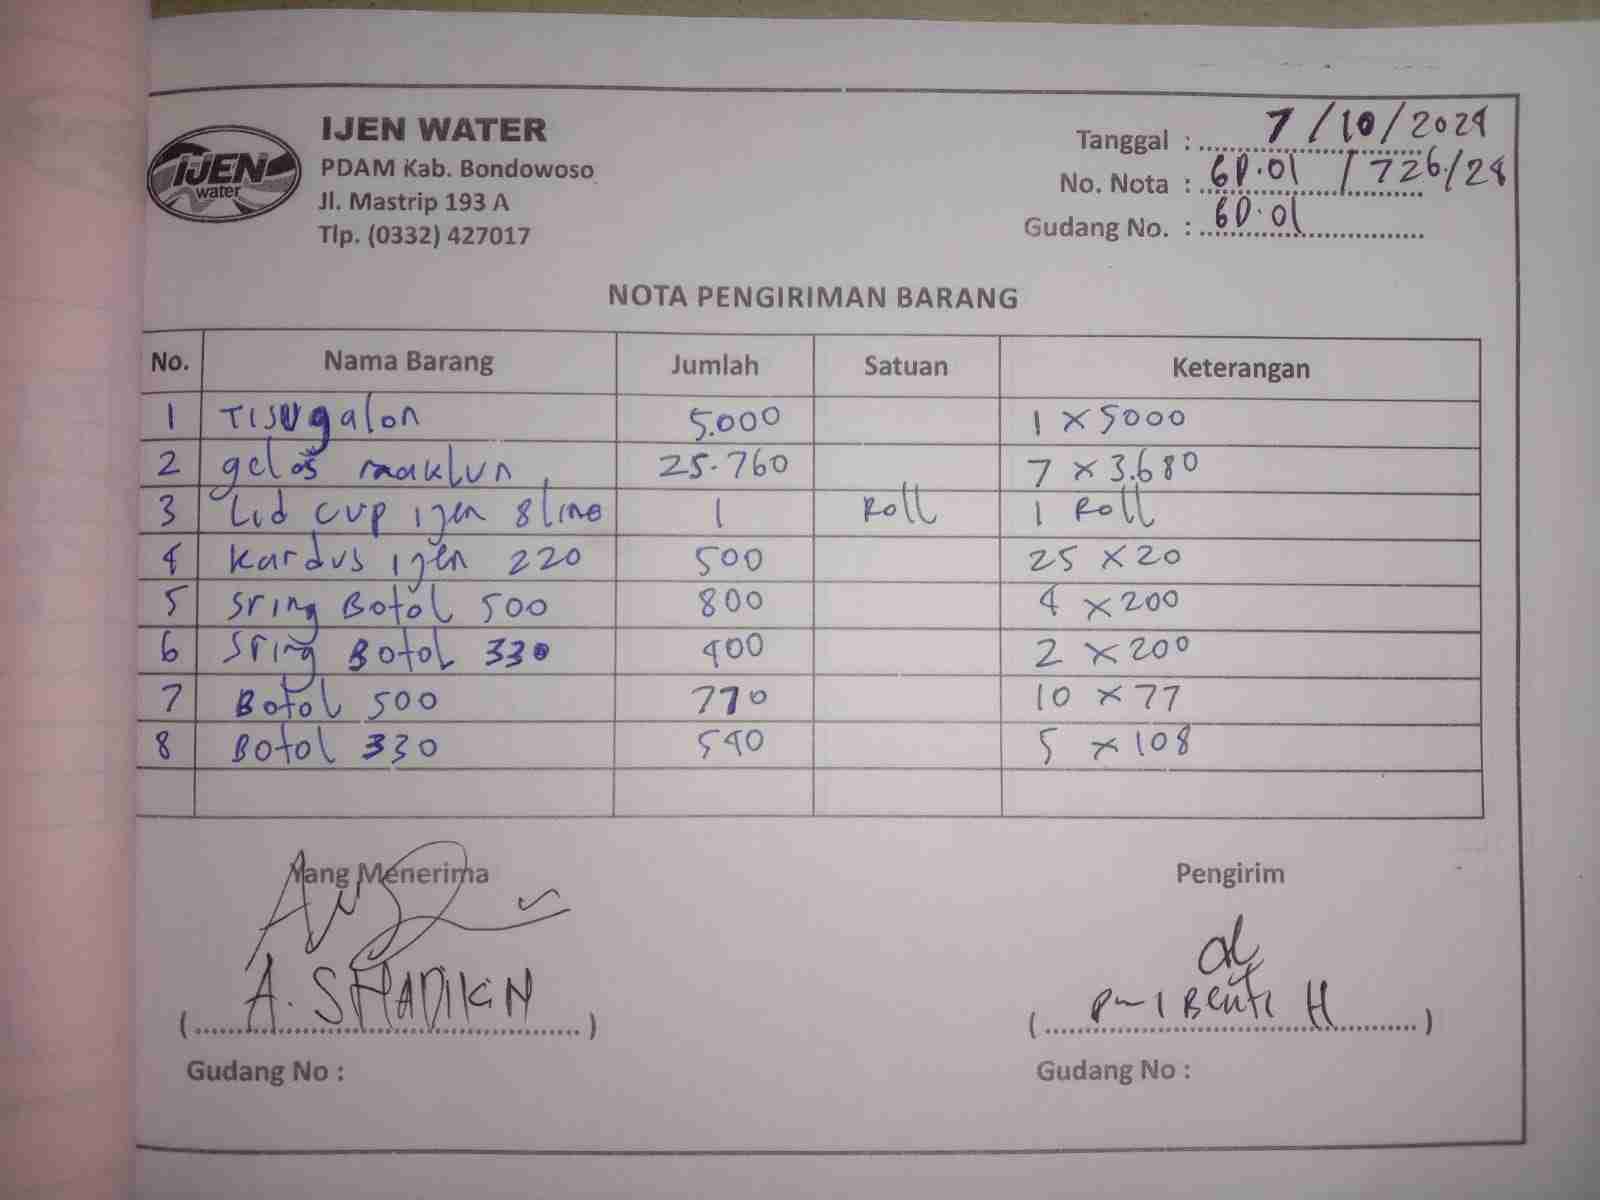 IJEN
water
IJEN WATER
PDAM Kab. Bondowoso
Jl. Mastrip 193 A
Tlp. (0332) 427017
Tanggal : 7/10/2024
No. Nota : GD.01 / 726/24
Gudang No. : GD.01
NOTA PENGIRIMAN BARANG
No. Nama Barang Jumlah Satuan Keterangan
1 Tisu galon 5.000 1 x 5000
2 gelas maklun 25.760 7 x 3.680
3 Lid cup ijen 8 line 1 Roll 1 Roll
4 Kardus ijen 220 500 25 x 20
5 Sring Botol 500 800 4 x 200
6 Sring Botol 330 400 2 x 200
7 Botol 500 770 10 x 77
8 Botol 330 540 5 x 108
Yang Menerima Pengirim
(A. SHADIKIN) (H)
Gudang No : Gudang No :